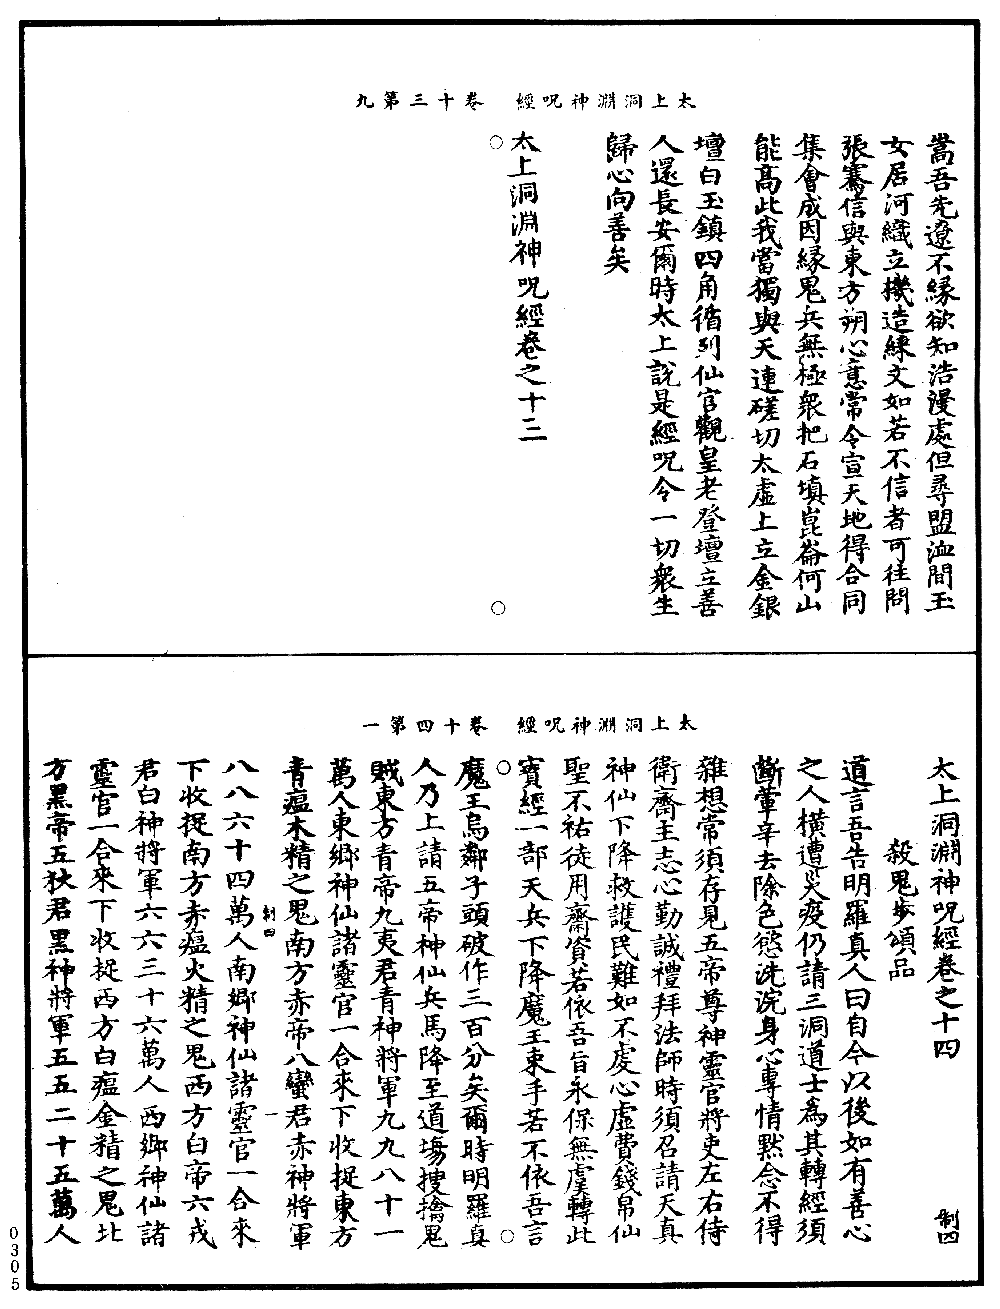 太上洞淵神呪經　卷十三第九
嵩吾先遼不緣欲知浩漫處但尋盟洫間玉
女居河織立機造綵文如若不信者可往問
張騫信與東方朔心意常令宣天地得合同
集會成因緣鬼兵無極衆把石填崑崙何山
能高此我當獨與天連磋切太虛上立金銀
壇白玉鎮四角循到仙官觀皇老登壇立善
人還長安爾時太上說是經呪令一切衆生
歸心向善矣
太上洞淵神呪經卷之十三
太上洞淵神呪經　卷十四第一
太上洞淵神呪經卷之十四　制四
殺鬼步頌品
道言吾告明羅真人曰自今以後如有善心
之人橫遭災疫仍請三洞道士為其轉經須
斷葷辛去除色慾洗浣身心專情黙念不得
雜想常須存見五帝尊神靈官將吏左右侍
衛齋主志心勤誠禮拜法師時須召請天真
神仙下降救護民難如不處心虛費錢帛仙
聖不祐徒用齋資若依吾旨永保無虞轉此
寶經一部天兵下降魔王束手若不依吾言
魔王烏鄰子頭破作三百分矣爾時明羅真
人乃上請五帝神仙兵馬降至道場搜擒鬼
賊東方青帝九夷君青神將軍九九八十一
萬人東鄉神仙諸靈官一合來下收捉東方
青瘟木精之鬼南方赤帝八蠻君赤神將軍
制四　一
八八六十四萬人南鄉神仙諸靈官一合來
下收捉南方赤瘟火精之鬼西方白帝六戎
君白神將軍六六三十六萬人西鄉神仙諸
靈官一合來下收捉西方白瘟金精之鬼北
方黑帝五狄君黑神將軍五五二十五萬人
0305